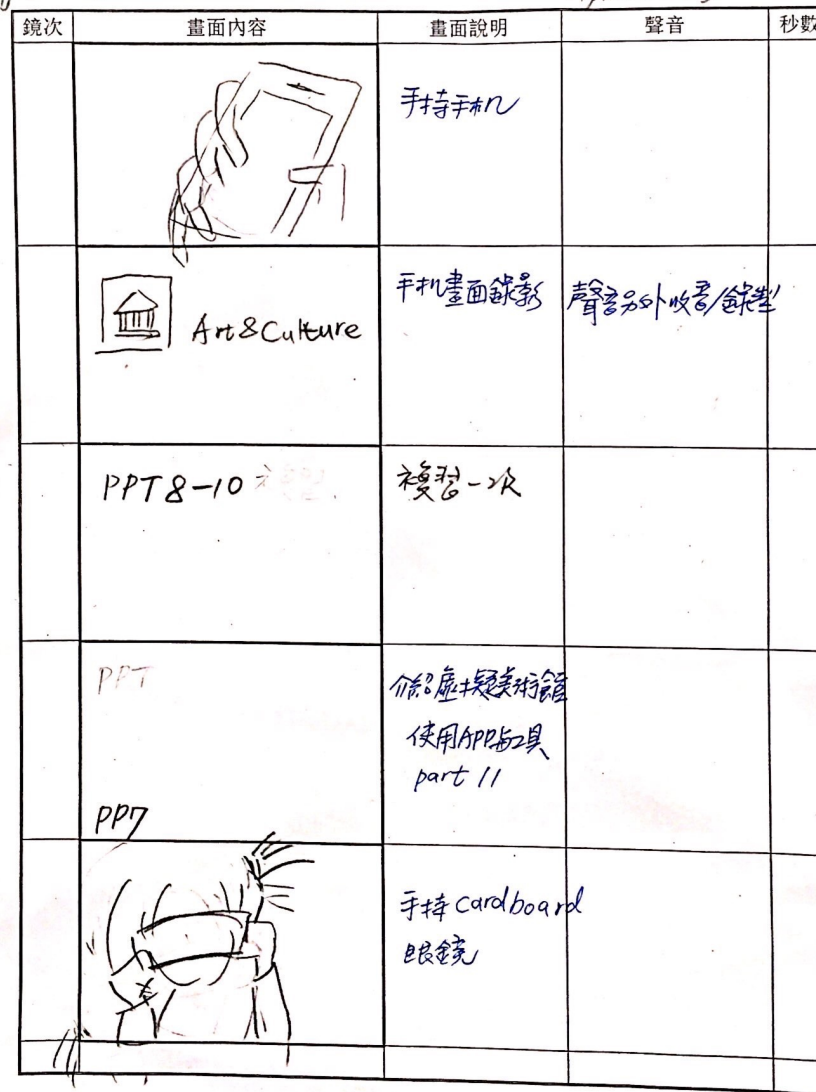 鏡次 畫面內容 畫面說明 聲音 秒數
手持手机
Art&Culture 手机畫面錄影 聲音另外收音/錄製
PPT 8-10 複習一次
PPT 介紹虛擬美術館
使用APP與工具
part 11
PP7
手持 cardboard
眼鏡